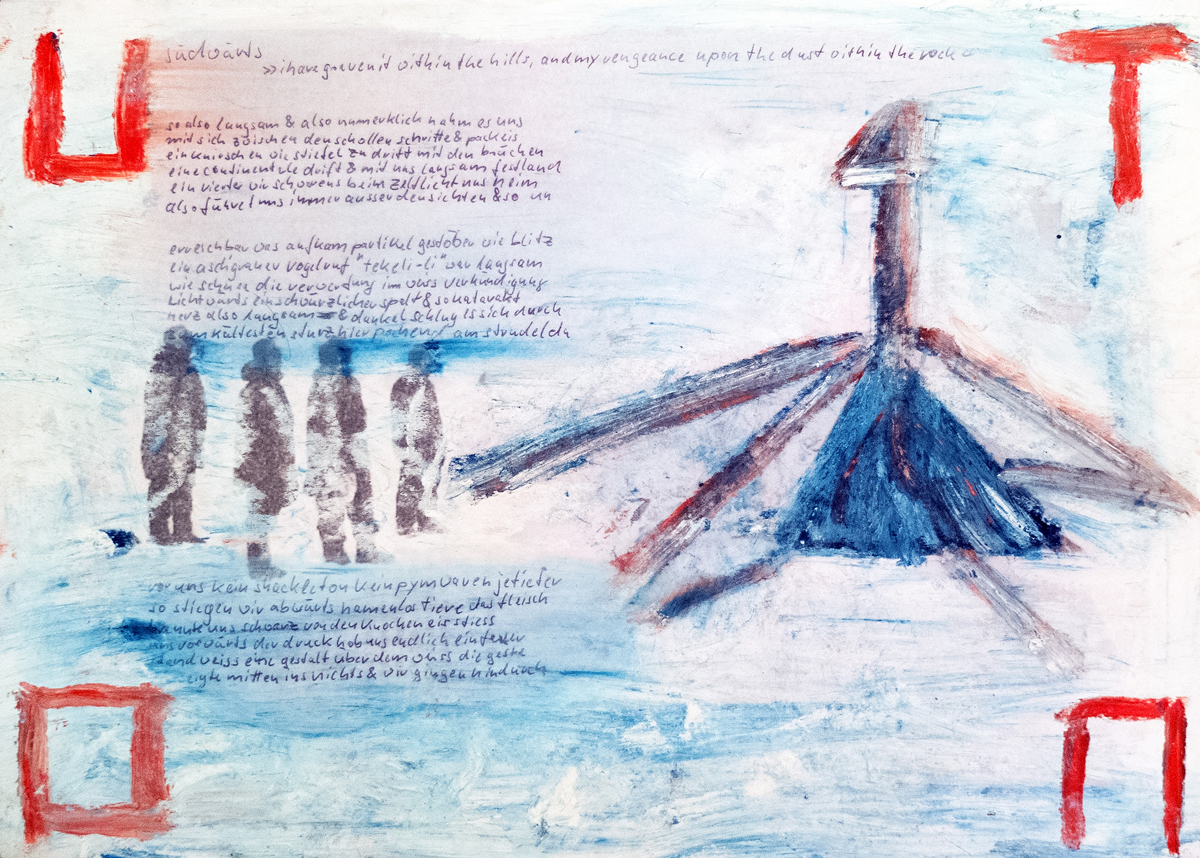 südwärts
»i have graven it within the hills, and my vengeance upon the dust within the rock«
so also langsam & also unmerklich nahm es uns
mit sich zwischen den schollen schritte & packeis
ein knirschen wie stiefel zu drift mit den brüchen
eine continentale drift & mit uns langsam festland
ein vierter wir schowens beim zeltlicht uns heim
also führet uns immer ausser den sichten & so un
erweichbar was aufkam partikel gestöber wie blitz
ein aschgrauer vogelruf "tekeli-li" war langsam
wie schnee die verwerdung im wuss verkündigung
lichtwärts ein schwärzlicher spalt & so katarakt
herz also langsam & dunkel schlug es sich durch
kältesten sturz hier pochend am strudel da
vor uns kein shackleton kein pym waren je tiefer
so stiegen wir abwärts namenlos tiere das fleisch
uns schwarz von den knochen eis stiess
uns vorwärts der druck hob uns endlich ein ferner
weiss eine gestalt über dem wuss die geste
mitten ins nichts & wir gingen hindurch